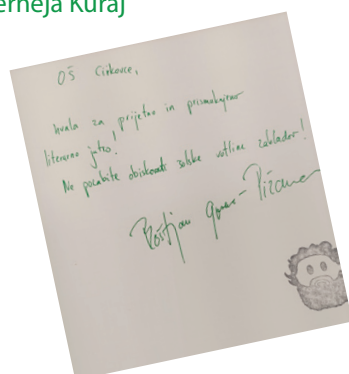 erneja Kuraj
OŠ Cirkovce,
hvala za prijetno in
literarno jutro!
Ne pozabite obiskovati votline zakladov!
Boštjan Gorenc - Pižama